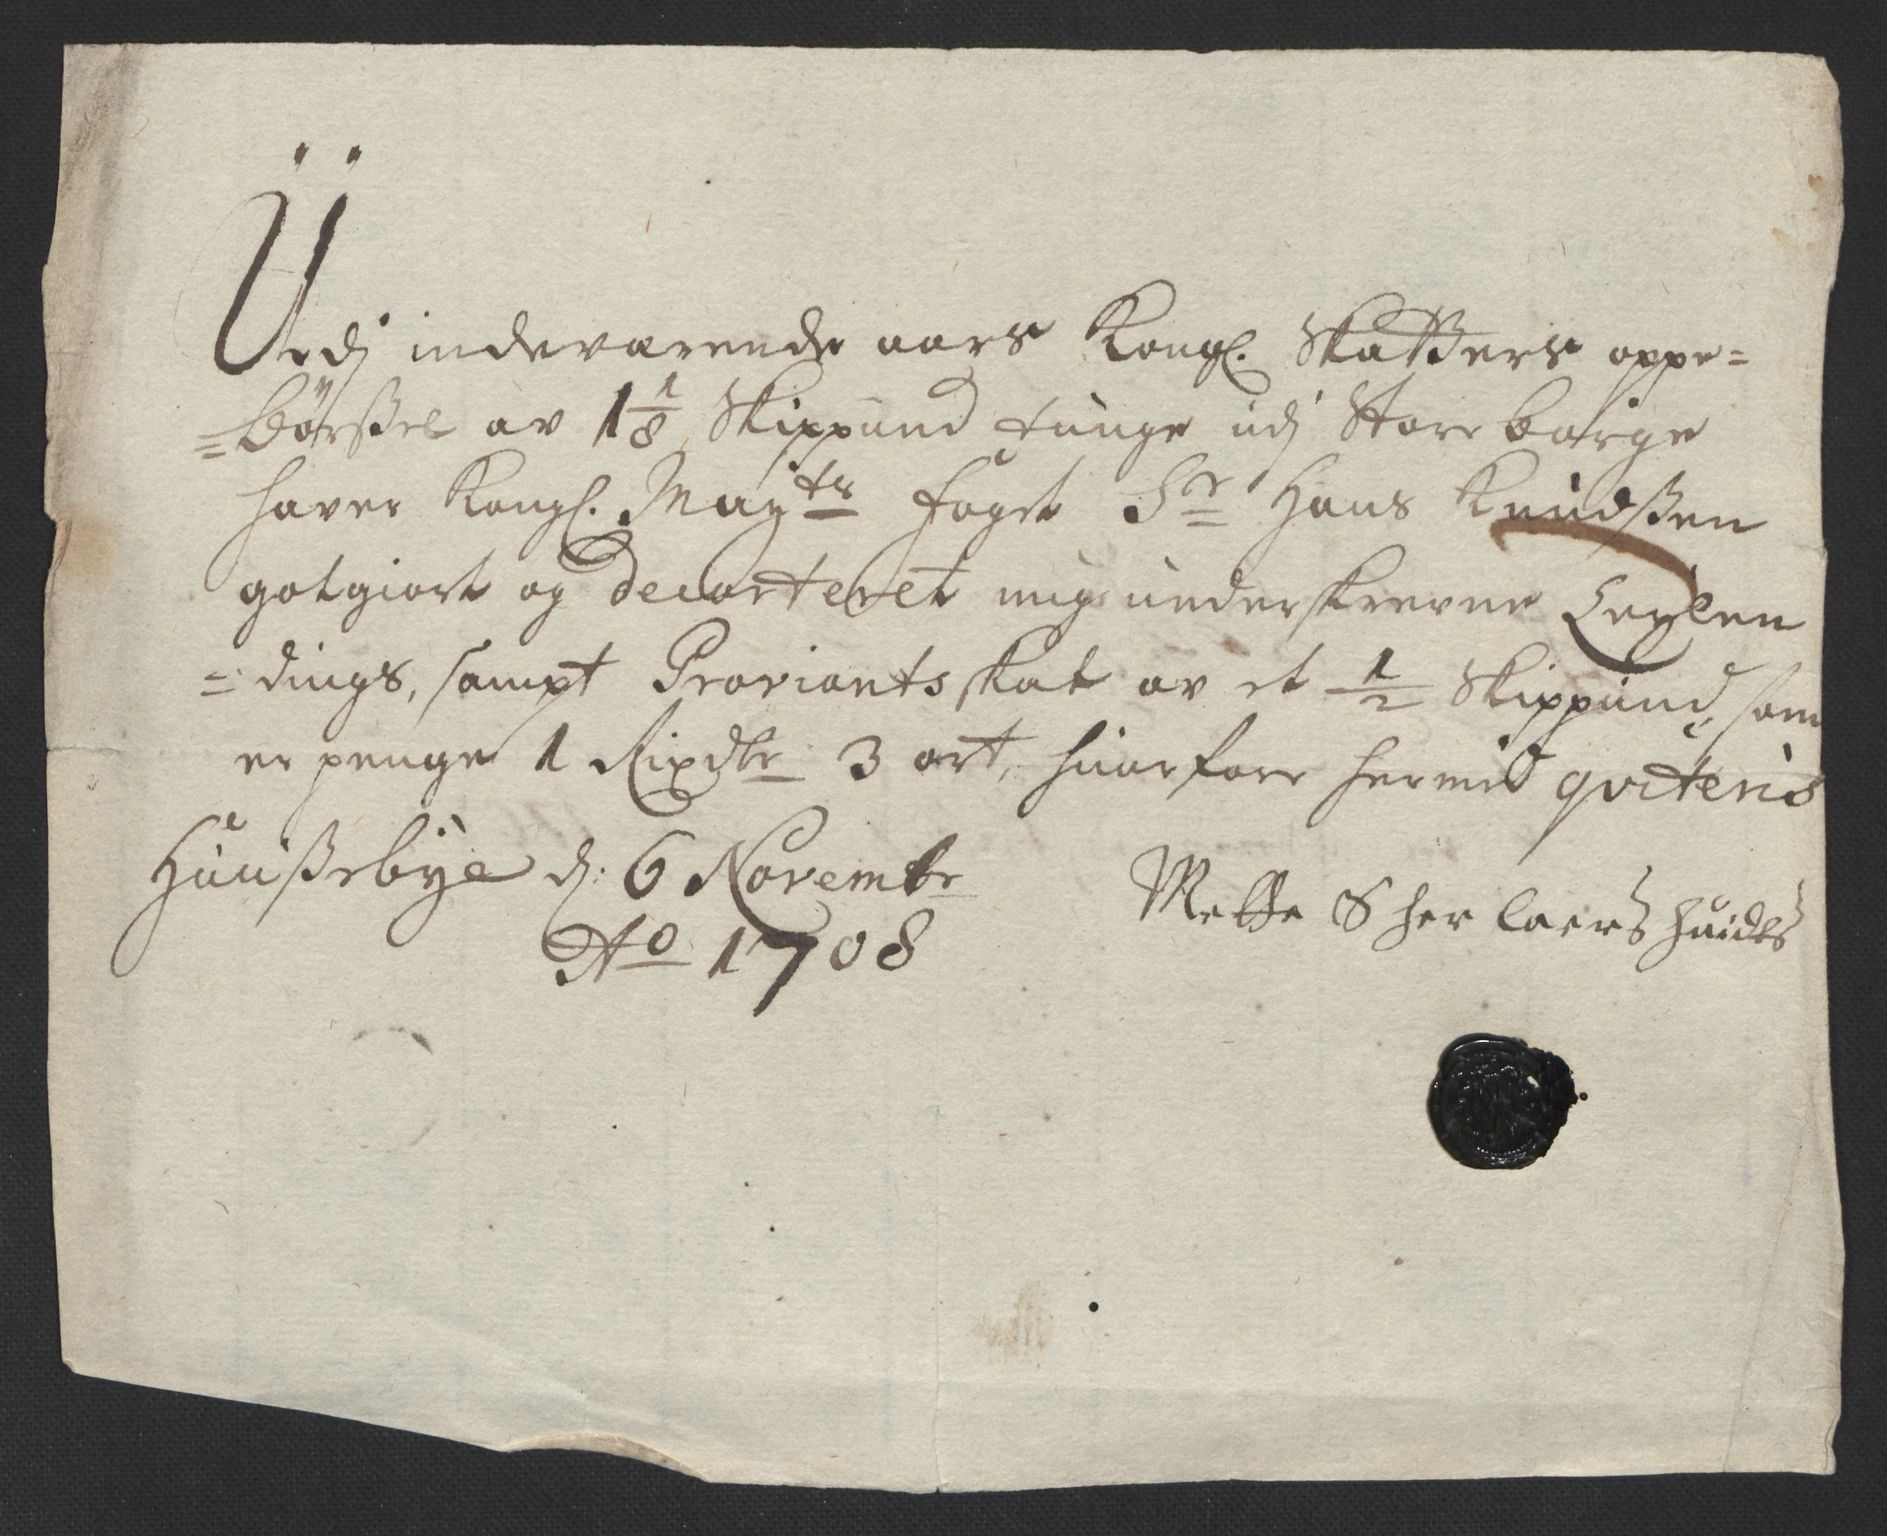 Udj indeværende aars Kongl. Skatters oppe=
=Börßel av 1 1/8 Skippund tunge udj Store borge
haver Kongl. Mayts foget Sr Hans Knudßen
gotgiort og decorteret mig underskrevne Leylen
=dings, sampt Proviantskat av et 1/2 Skippund, som
er penge 1 Rixdlr 3 ort, huorfore hermed qviteris
Huußebye d: 6 Novembr
Ao 1708
Mette Sher laers huides